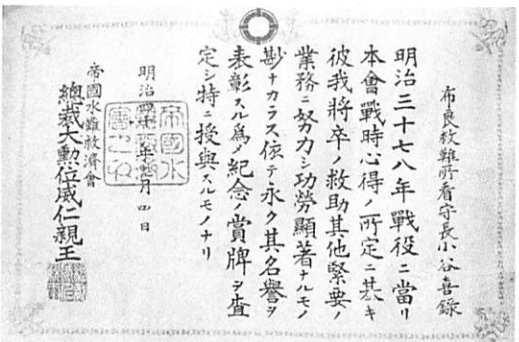 布良救難所看守長小谷喜録
明治三十七八年戰役ニ當リ
本會戰時心得ノ所定ニ基キ
彼我將卒ノ救助其他緊要ノ
業務ニ努力シ功勞顯著ナルモノ
尠ナカラス依テ永ク其名譽ヲ
表彰スル爲メ紀念ノ賞牌ヲ査
定シ特ニ授與スルモノナリ
明治 年 月四日
帝國水難救濟會
總裁大勲位威仁親王